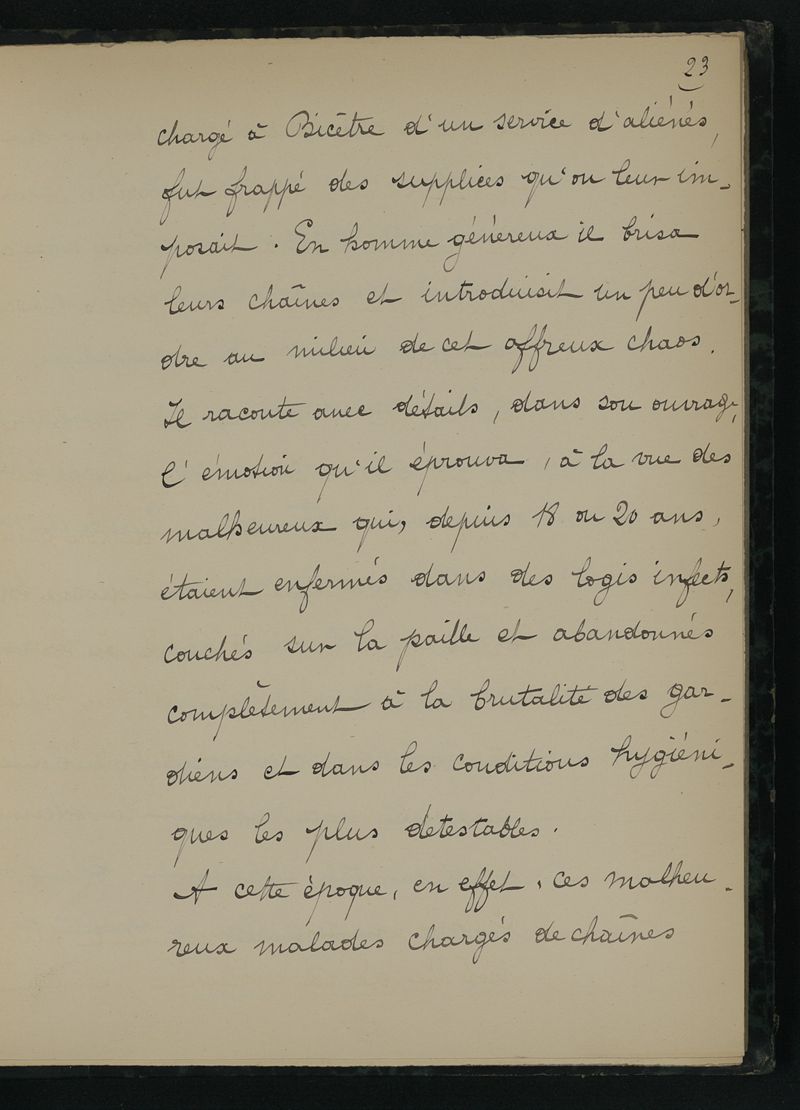 23
chargé à Bicêtre d'un service d'aliénés,
fut frappé des supplices qu'on leur im-
posait. En homme généreux il brisa
leurs chaînes et introduisit un peu d'or-
dre au milieu de cet affreux chaos.
Il raconte avec détails, dans son ouvrage,
l'émotion qu'il éprouva, à la vue des
malheureux qui, depuis 18 ou 20 ans,
étaient enfermés dans des logis infects,
couchés sur la paille et abandonnés
complètement à la brutalité des gar-
diens et dans les conditions hygiéni-
ques les plus détestables.
A cette époque, en effet, ces malheu-
reux malades chargés de chaînes